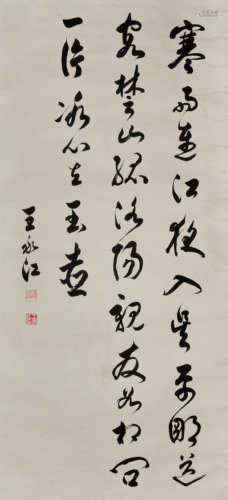 寒雨連江夜入吳平明送
客楚山孤洛陽親友如相問
一片冰心在玉壺
王永江